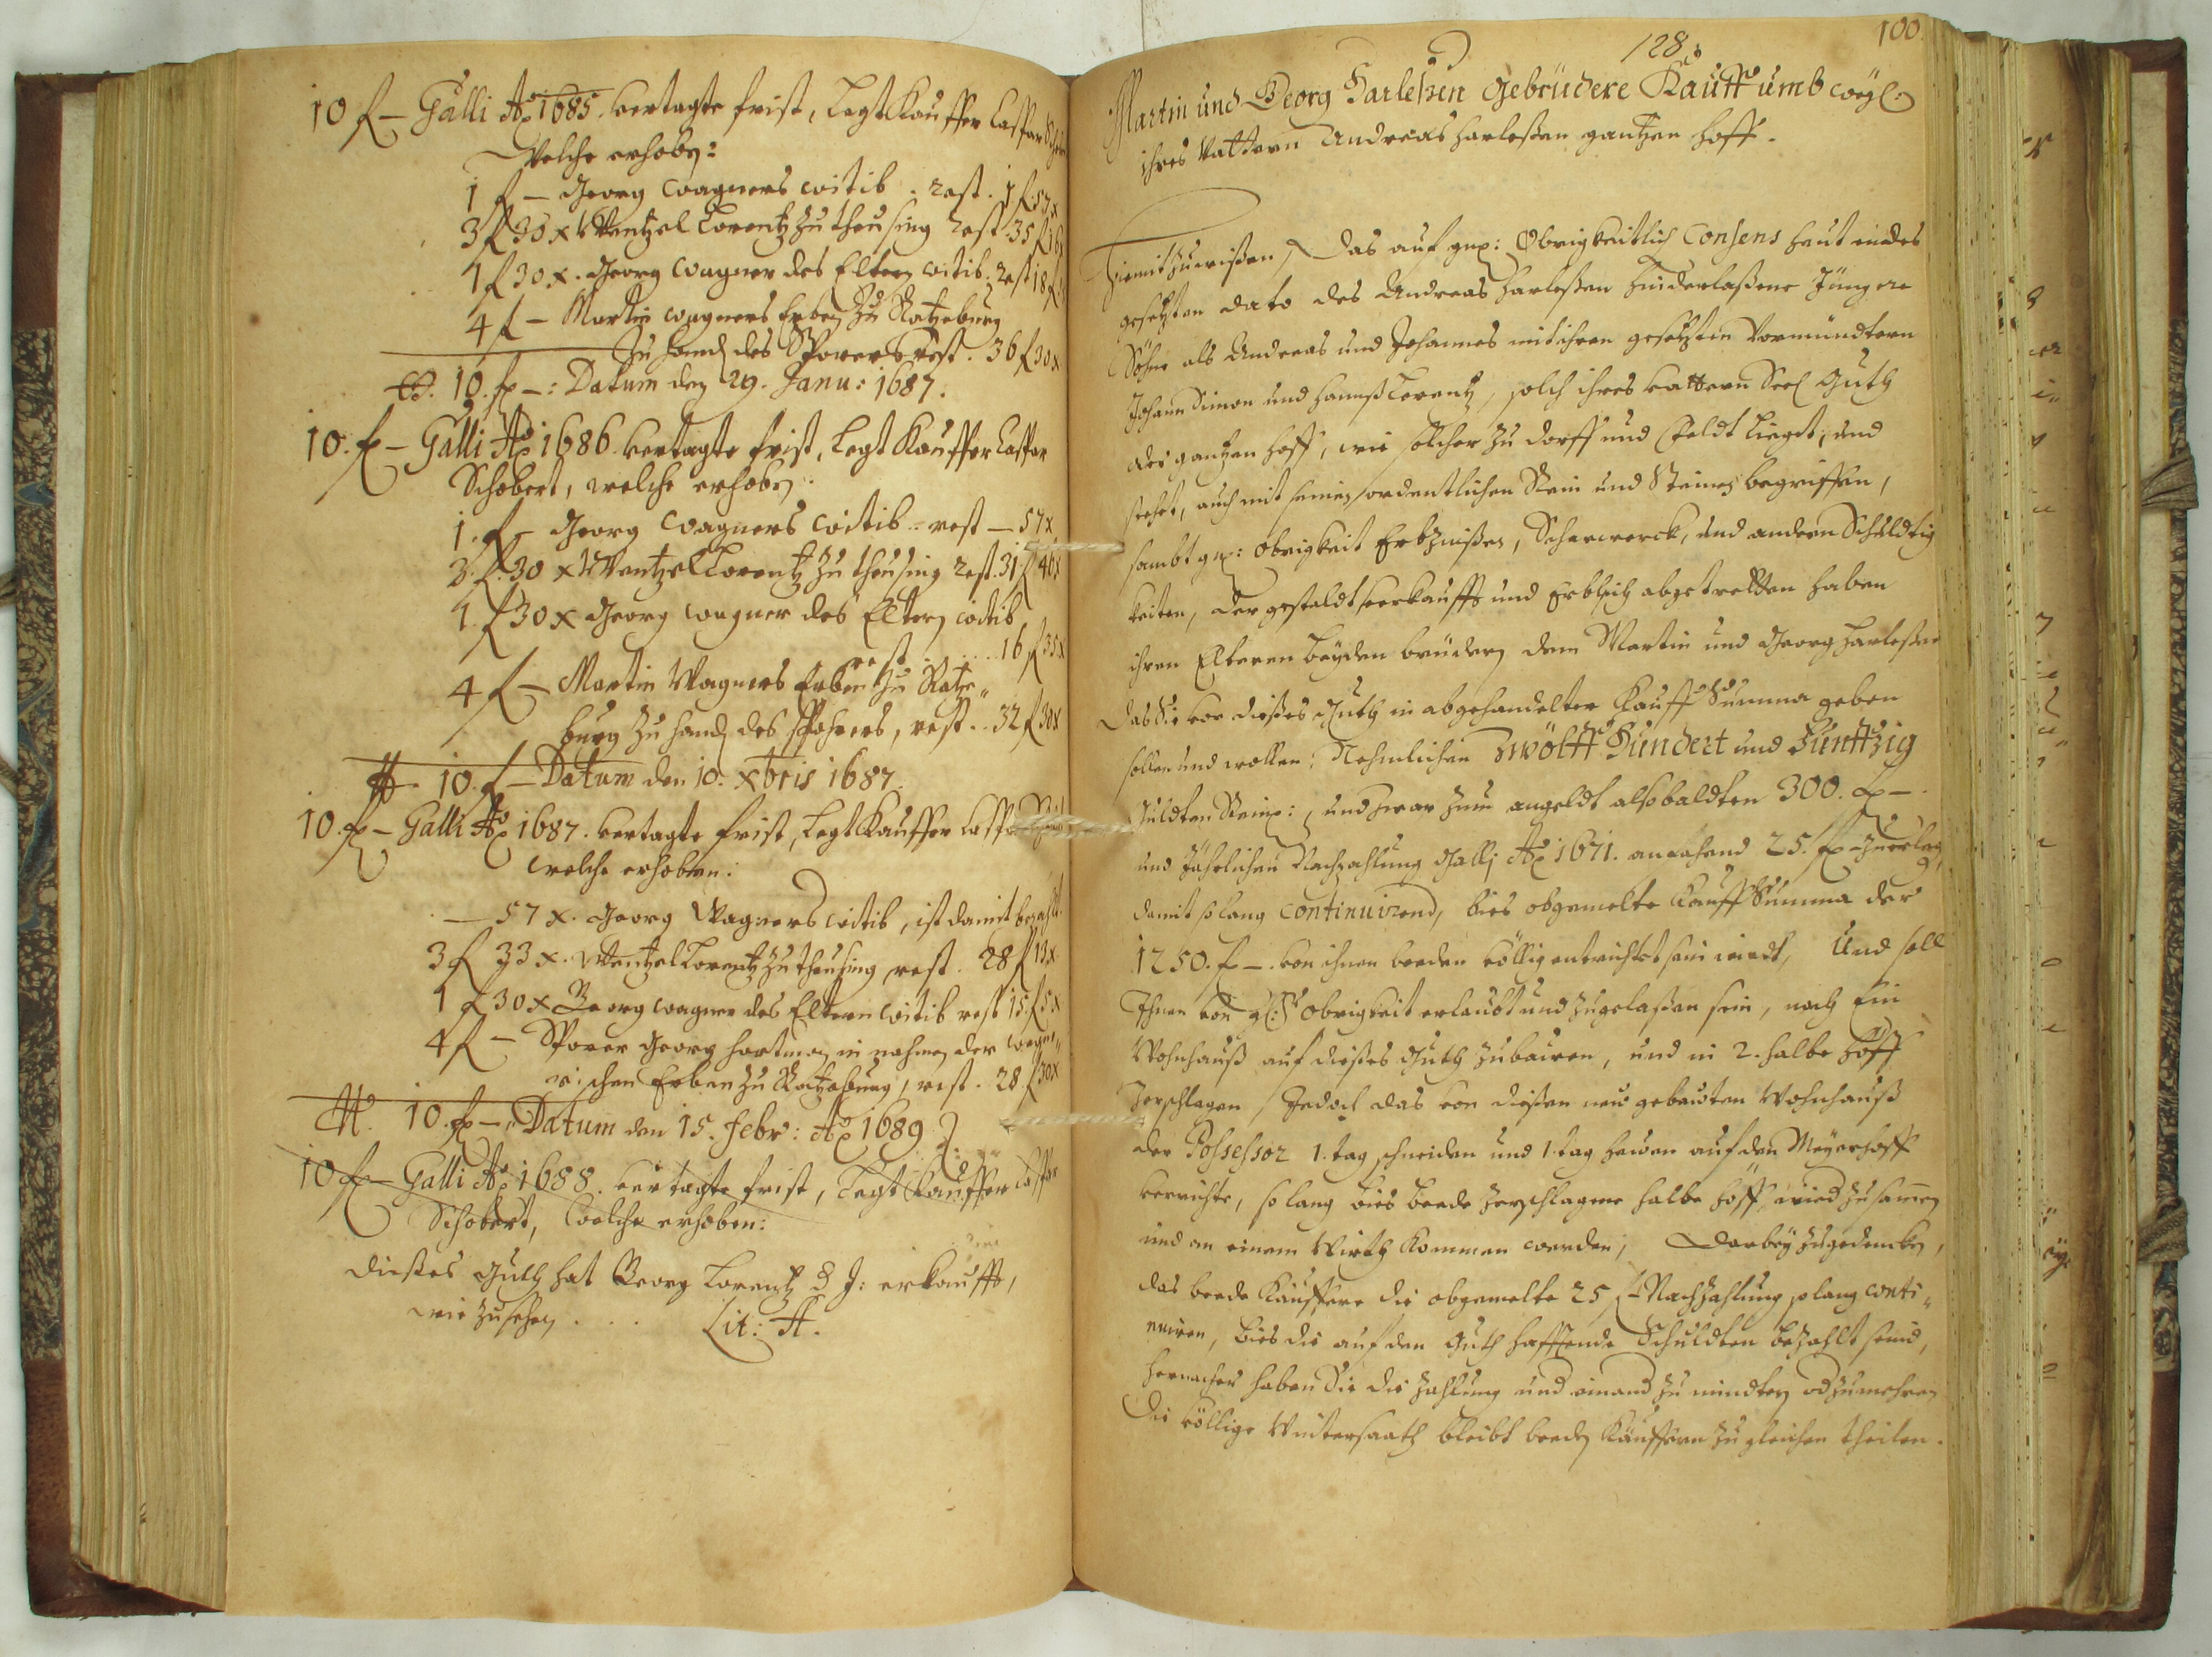 10 f – Galli Ao 1685. vertagte frist, legt Kauffer Caspar Schob
Welche erhoben:
1 f – Georg Wagners witib . rest . 1 f 57 x
3 f 30 x Wentzel Lorentz zu theusing rest 35 f 16 x
1 f 30 x. Georg Wagner des Eltern witib . rest 18 f
4 f – Martin Wagners Erben zu Ratzeburg
zu handen des Sporers rest . 36 f 30 x
10. f –: Datum den 29. Janu: 1687.
10. f – Galli Ao 1686. vertagte frist, legt Kauffer Caspar
Schobert, welche erhoben:
1. f – Georg Wagners witib – rest – 57 x
3. f. 30 x Wentzel Lorentz zu theusing rest. 31 f 46 x
1. f 30 x Georg Wagner des Eltern witib
rest . . . . . 16 f 35 x
4 f – Martin Wagners Erben zu Ratze„
burg zu handen des Spohrers, rest . . 32 f 30 x
10. f – Datum den 10. Xbris 1687.
10. f – Galli Ao 1687. vertagte frist, legt Kauffer Caspar
welche erhoben:
– 57 x. Georg Wagners witib, ist damit bezahlt
3 f 33 x. Wentzel Lorentz zu theusing rest . 28 f 13 x.
1 f 30 x Georg Wagner des Eltern witib rest 15. f 5 x
4 f – Sporer Georg Hartman in nahmen der Wagne„
rischen Erben zu Ratzeburg, rest . 28. f 30 x
10. f –„ Datum den 15. Febr: Ao 1689
10 f – Galli Ao 1688. vertagte frist, legt Kauffer Caspar
Schobert, welche erhoben:
Dießes Guth hat Georg Lorentz d J: erkaufft,
wie zu sehen . . . Lit: A.
100.
128.
Martin und Georg Harleßen Gebrüdere Kauff umb weyl:
ihres Vattern Andreas Harleßen gantzen Hoff.
Hiemit zu wißen, Das auf gnd: Obrigkeitlich Consens heut endes
gesetzten dato des Andreas Harleßen hinderlaßene Jüngere
Söhne als Andreas und Johannes mit ihren gesetzten Vormündtern
Johann Simon und Hannß Lorentz, solch ihres Vattern Seel Guth
als gantzen Hoff, wie solcher zu dorff und Feldt lieget, und
stehet, auch mit seinen ordentlichen Rein und Steinen begriffen,
sambt gnd: Obrigkeit Erbzinßen, Scharwerck, und andern Schuldig
keiten, der gestaldt verkaufft und Erblich abgetretten haben
ihren Elteren beyden brüdern dem Martin und Georg Harleßen
Das Sie vor dießes Guth in abgehandelter Kauff Summa geben
sollen und wollen, Nehmlichen Zwölff Hundert und Funffzig
Gulden Rein:, und zwar zum angeldt alsobaldten 300. f –
und Jährlichen Nachzahlung Galli Ao 1671. anfahend 25. f – zuerleg
damit so lang continuirend, bies obgemelte Kauff Summa der
1250. f –. von ihnen beeden völlig entrichtet sein wirdt, Und soll
Ihnen von Obrigkeit erlaubt und zugelaßen sein, noch Ein
Wohnhauß auf dießes Guth zubauen, und in 2. halbe Höff
Zerschlagen, Jedoch das von dießen neu gebauten Wohnhauß
der Possessor 1. tag schneiden und 1. tag hauen auf den Meyerhoff
verrichte, so lang bies beede zerschlagene halbe Höff wied zusamen
und an einem Wirth kommen werden, Darbey zugedencken,
das beede Käuffere die obgemelte 25 f – Nachzahlung so lang conti„
nuiren, bies die auf den Guth hafftende Schuldten bezahlt seind,
hernacher haben Sie die Zahlung und einand zu mindtern od zumehren
Die völlige Wintersaath bleibt beeden Käuffern zu gleichen theilen.